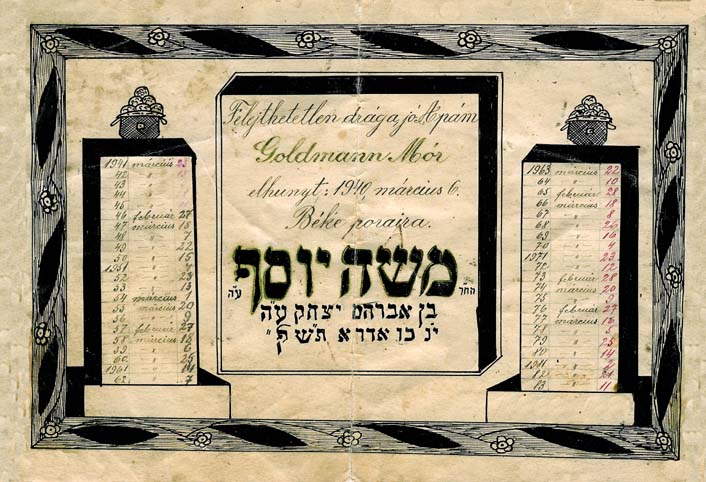 Felejthetetlen drága jó Apám
Goldmann Mór
elhunyt: 1940, március 6.
Béke poraira.
משה יוסף ע"ה
בן אברהם יצחק ע"ה
כו אדר א
1941 március 25
42 "
43 "
44 "
45 "
46 február 27
47 március
48 " 7
49 " 22
50 " 15
1951 " 4
52 " 23
53 " 13
54 március 1
55 március 20
56 " 9
57 február 27
58 március 18
59 " 6
60 " 25
1961 " 14
62 "
1963 március 22
64 " 10
65 február 28
66 március 18
67 " 8
68 " 26
69 " 16
70 " 4
1971 " 23
72 " 12
73 február 28
74 március 20
75 " 9
76 február 27
77 március 16
78 " 5
79 " 25
80 " 14
" 2
82 " 21
83 " 11